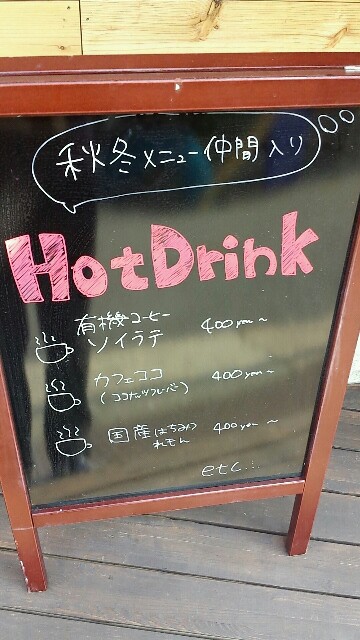 秋冬メニュー仲間入り
HotDrink
有機コーヒー
ソイラテ 400yen～
カフェココ 400yen～
(ココナッツフレーバー)
国産はちみつ 400yen～
れもん
etc...